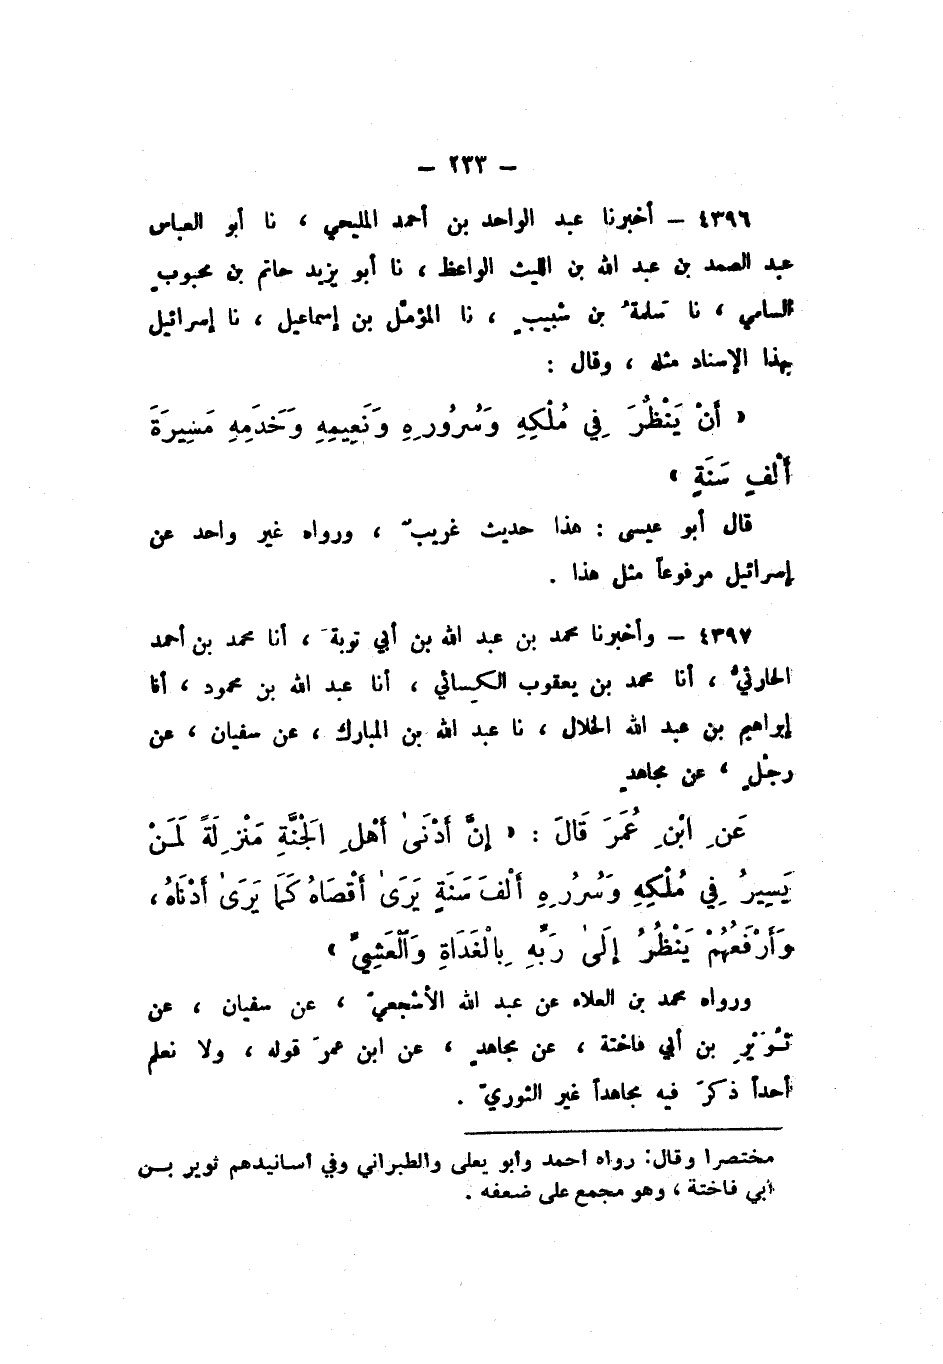 – ٢٣٣ –
٤٣٩٦ – أخبرنا عبد الواحد بن أحمد المليحي ، نا أبو العباس
عبد الصمد بن عبد الله بن الليث الواعظ ، نا أبو يزيد حاتم بن محبوبٍ
السامي ، نا سَلمةُ بن شبيبٍ ، نا المؤمّل بن إسماعيل ، نا إسرائيل
بهذا الإسناد مثله ، وقال :
« أَنْ يَنْظُرَ فِي مُلْكِهِ وَسُرُورِهِ وَنَعِيمِهِ وَخَدَمِهِ مَسِيرَةَ
أَلْفِ سَنَةٍ »
قال أبو عيسى : هذا حديث غريبٌ ، ورواه غير واحد عن
إسرائيل مرفوعاً مثل هذا .
٤٣٩٧ – وأخبرنا محمد بن عبد الله بن أبي توبةَ ، أنا محمد بن أحمد
الحارثيُّ ، أنا محمد بن يعقوب الكسائي ، أنا عبد الله بن محمود ، أنا
إبراهيم بن عبد الله الخلال ، نا عبد الله بن المبارك ، عن سفيان ، عن
رجُلٍ ، عن مجاهدٍ
عَنِ ابْنِ عُمَرَ قَالَ : « إِنَّ أَدْنَىٰ أَهْلِ الْجَنَّةِ مَنْزِلَةً لَمَنْ
يَسِيرُ فِي مُلْكِهِ وَسُرُرِهِ أَلْفَ سَنَةٍ يَرَىٰ أَقْصَاهُ كَمَا يَرَىٰ أَدْنَاهُ ،
وَأَرْفَعُهُمْ يَنْظُرُ إِلَىٰ رَبِّهِ بِالْغَدَاةِ وَٱلْعَشِيِّ »
ورواه محمد بن العلاء عن عبد الله الأشجعيّ ، عن سفيان ، عن
ثُوَيْرِ بن أبي فاختة ، عن مجاهدٍ ، عن ابن عمرَ قوله ، ولا نعلم
أحداً ذكرَ فيه مجاهداً غير الثوريّ .
مختصرا وقال: رواه أحمد وأبو يعلى والطبراني وفي أسانيدهم ثوير بــن
أبي فاختة ، وهو مجمع على ضعفه .